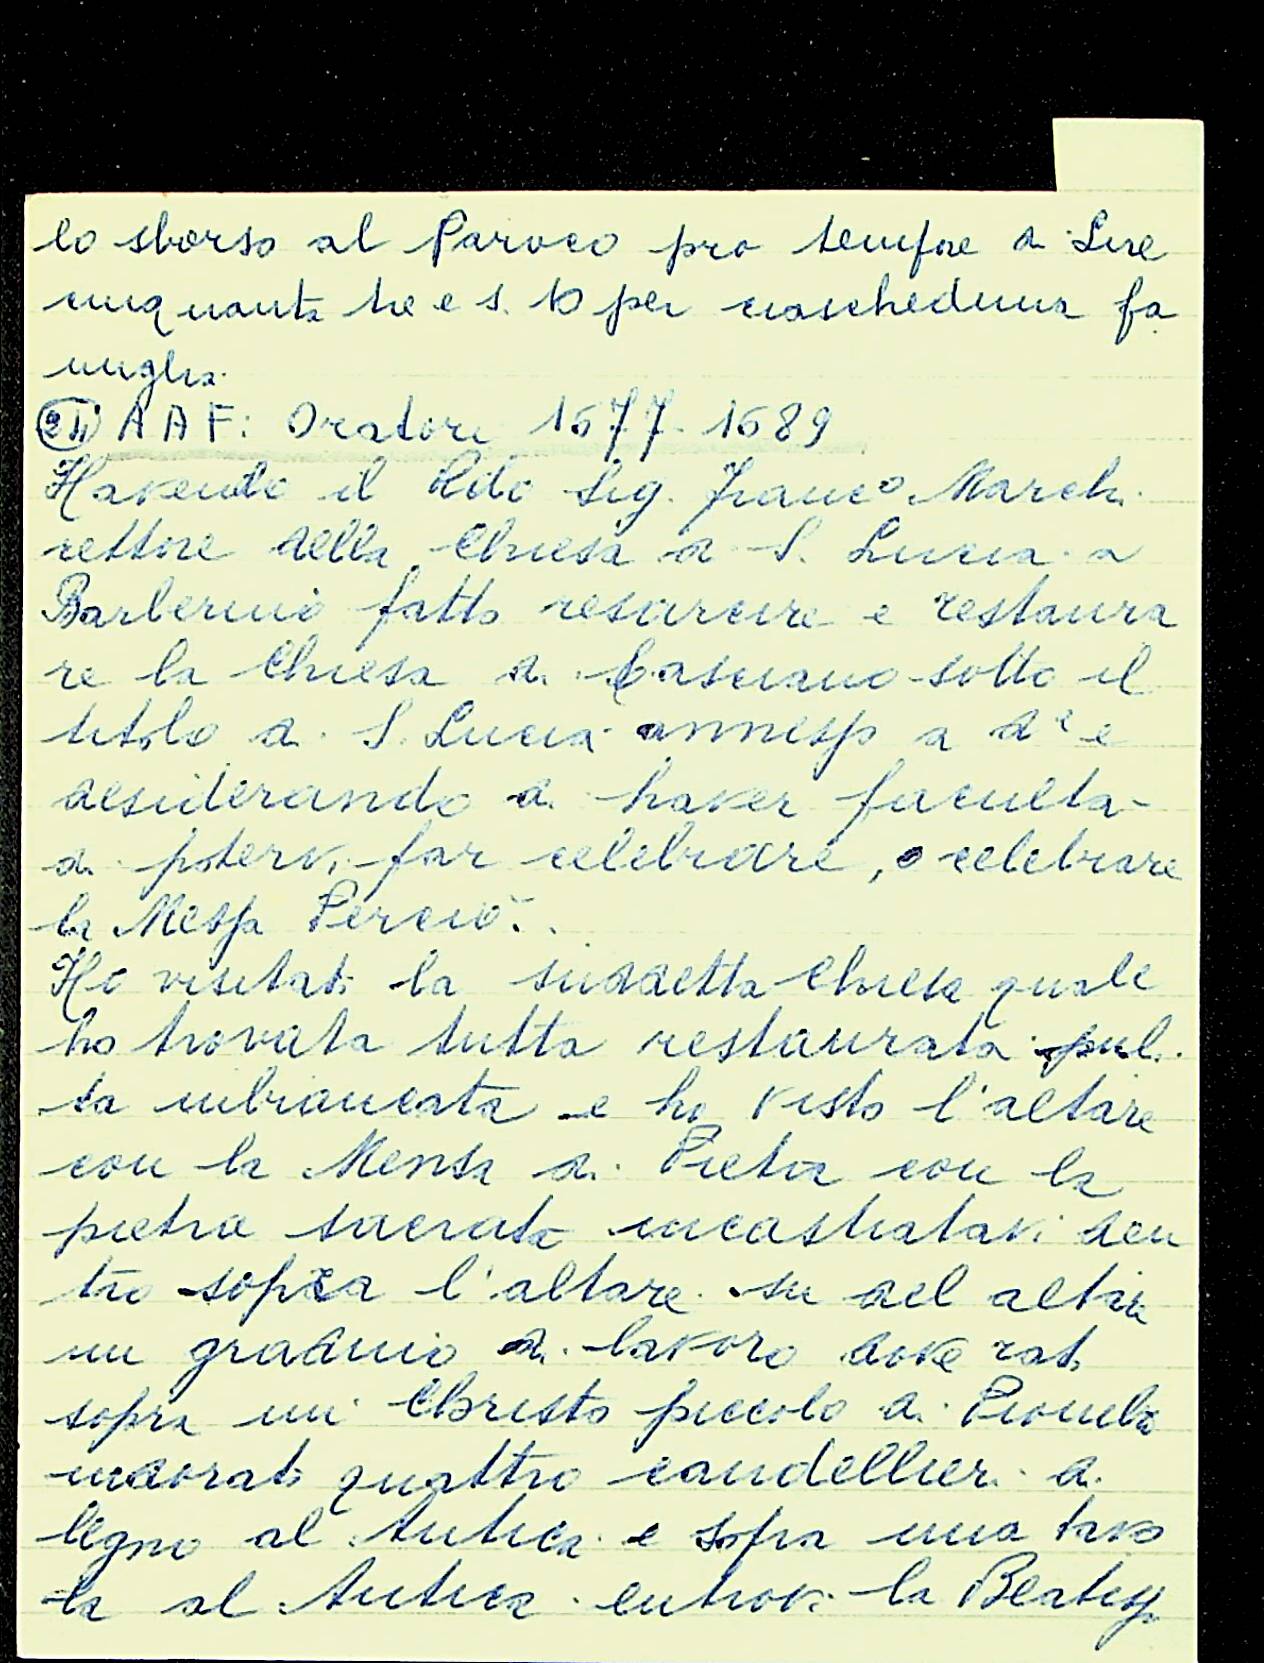 lo sborso al Paroco pro tempore di Lire
cinquanta tre e s. 10 per ciascheduna fa
miglia.
24) A A F: Oratori 1677-1689
Havendo il Rdo Sig. Franco Marchi
rettore della Chiesa di S. Lucia a
Barberino fatto resarcire e restaura
re la Chiesa di Casciano sotto il
titolo di S. Lucia annessa a da e
desiderando di haver faculta
di potervi far celebrare, o celebrare
la Messa Perciò..
Ho visitato la suddetta Chiesa quale
ho trovata tutta restaurata puli
ta inbiancata e ho visto l'altare
con la Mensa di Pietra con la
pietra sacrata incastratavi den
tro sopra l'altare su del altare
un gradino di lavoro dorato
sopra un Christo piccolo di Piombo
indorato quattro candellieri di
legno al Antica e sopra una tavo
la al Antica entrovi la Beatiss